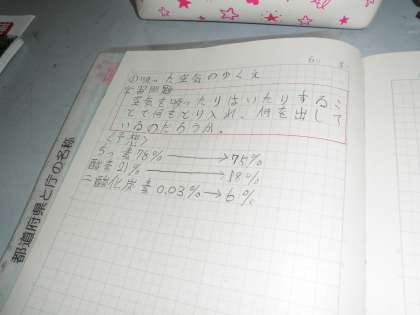 吸った空気のゆくえ
学習問題
空気を吸ったりはいたりするこ
とで何をとり入れ、何を出して
いるのだろうか。
〈予想〉
ちっ素78%→75%
酸素21%→18%
二酸化炭素0.03%→6%
都道府県と庁の名称